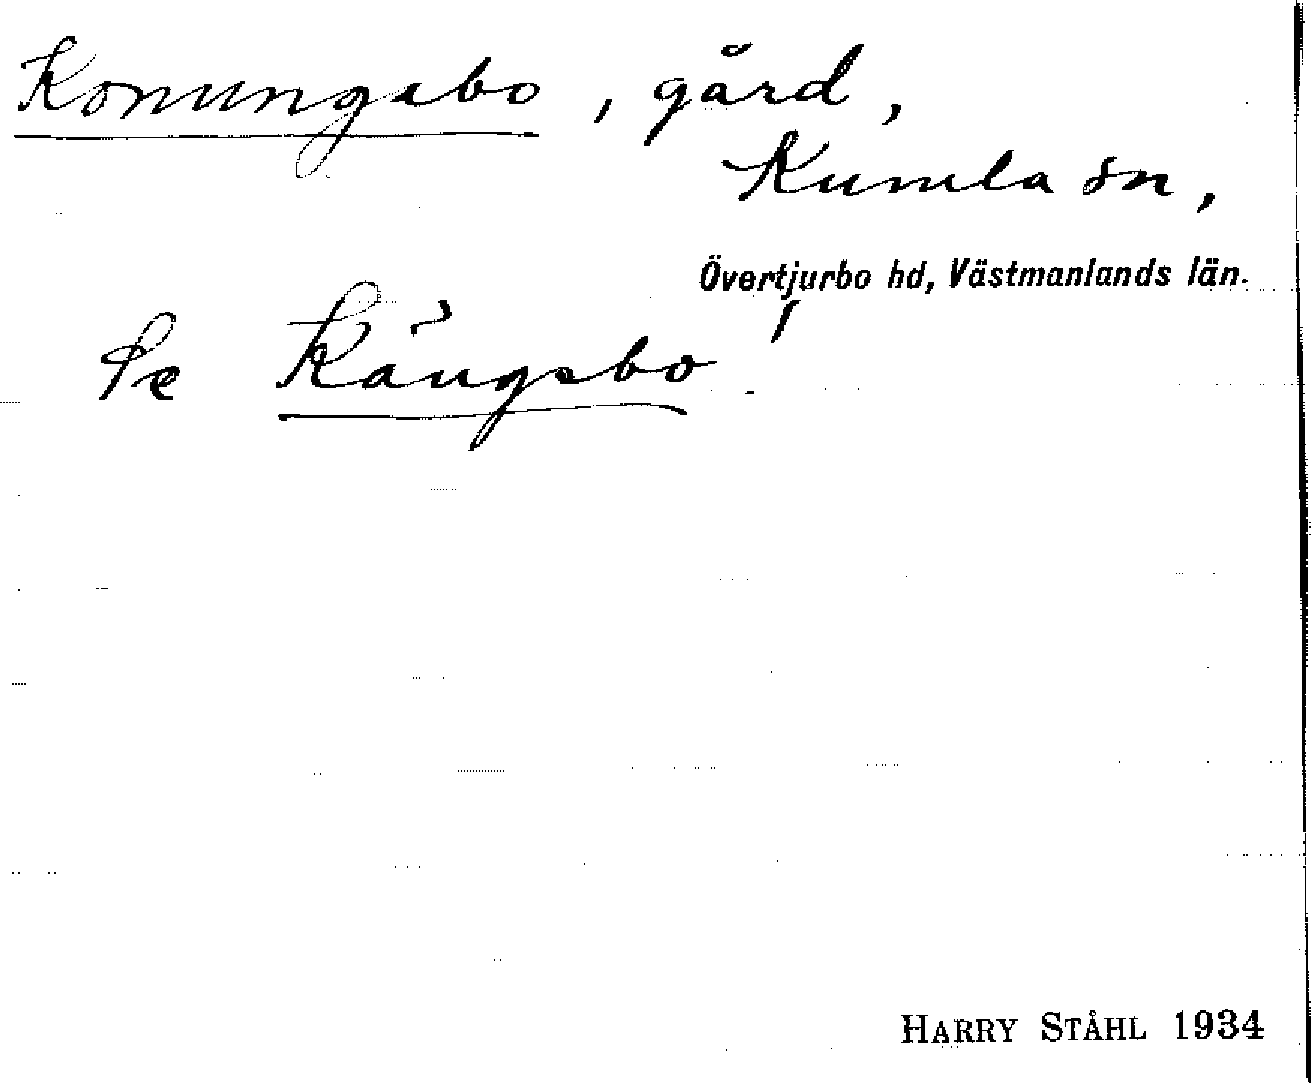 Konungsbo, gård,
Kumla sn,
Övertjurbo hd, Västmanlands län.
Se Kångsbo!
HARRY STÅHL 1934